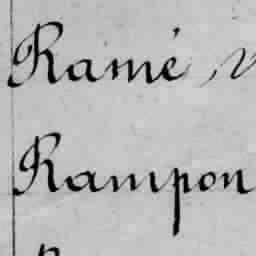 Ramé
Rampon